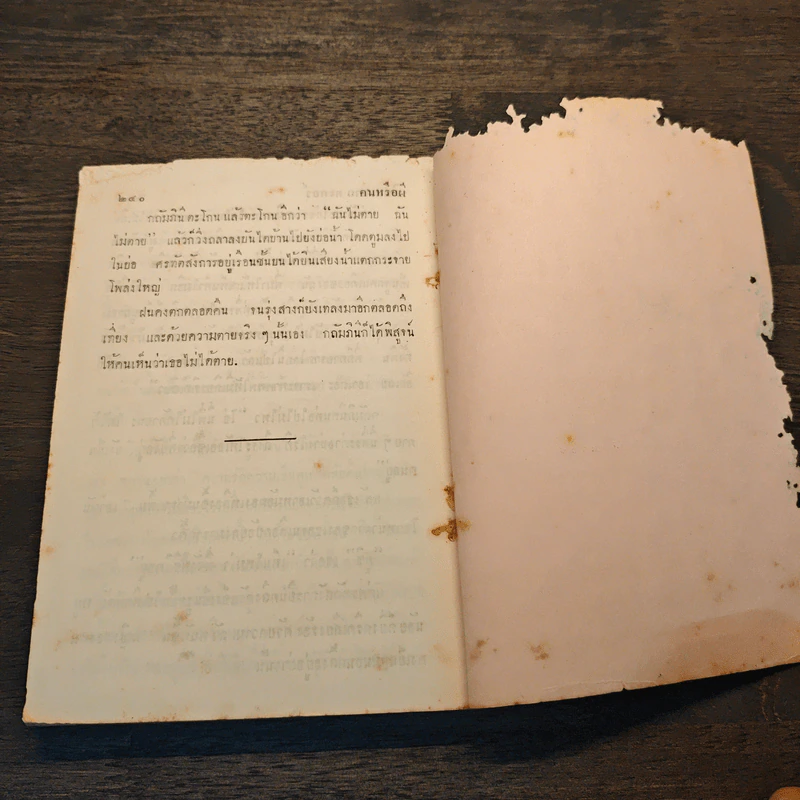 ๒๘๑ คนหรือผี
กถัมภินีตะโกนแล้วตะโกนอีกว่า “ฉันไม่ตาย ฉัน
ไม่ตาย” แล้วก็วิ่งถลาลงบันไดบ้านไปยังบ่อน้ำ โดดตูมลงไป
ในบ่อ ศรทัตสังการอยู่เรือนชั้นบนได้ยินเสียงน้ำแตกกระจาย
โพล่งใหญ่
ฝนคงตกตลอดคืน จนรุ่งสางก็ยังเทลงมาอีกตลอดถึง
เที่ยง และด้วยความตายจริง ๆ นั้นเอง กถัมภินีก็ได้พิสูจน์
ให้คนเห็นว่าเธอไม่ได้ตาย.